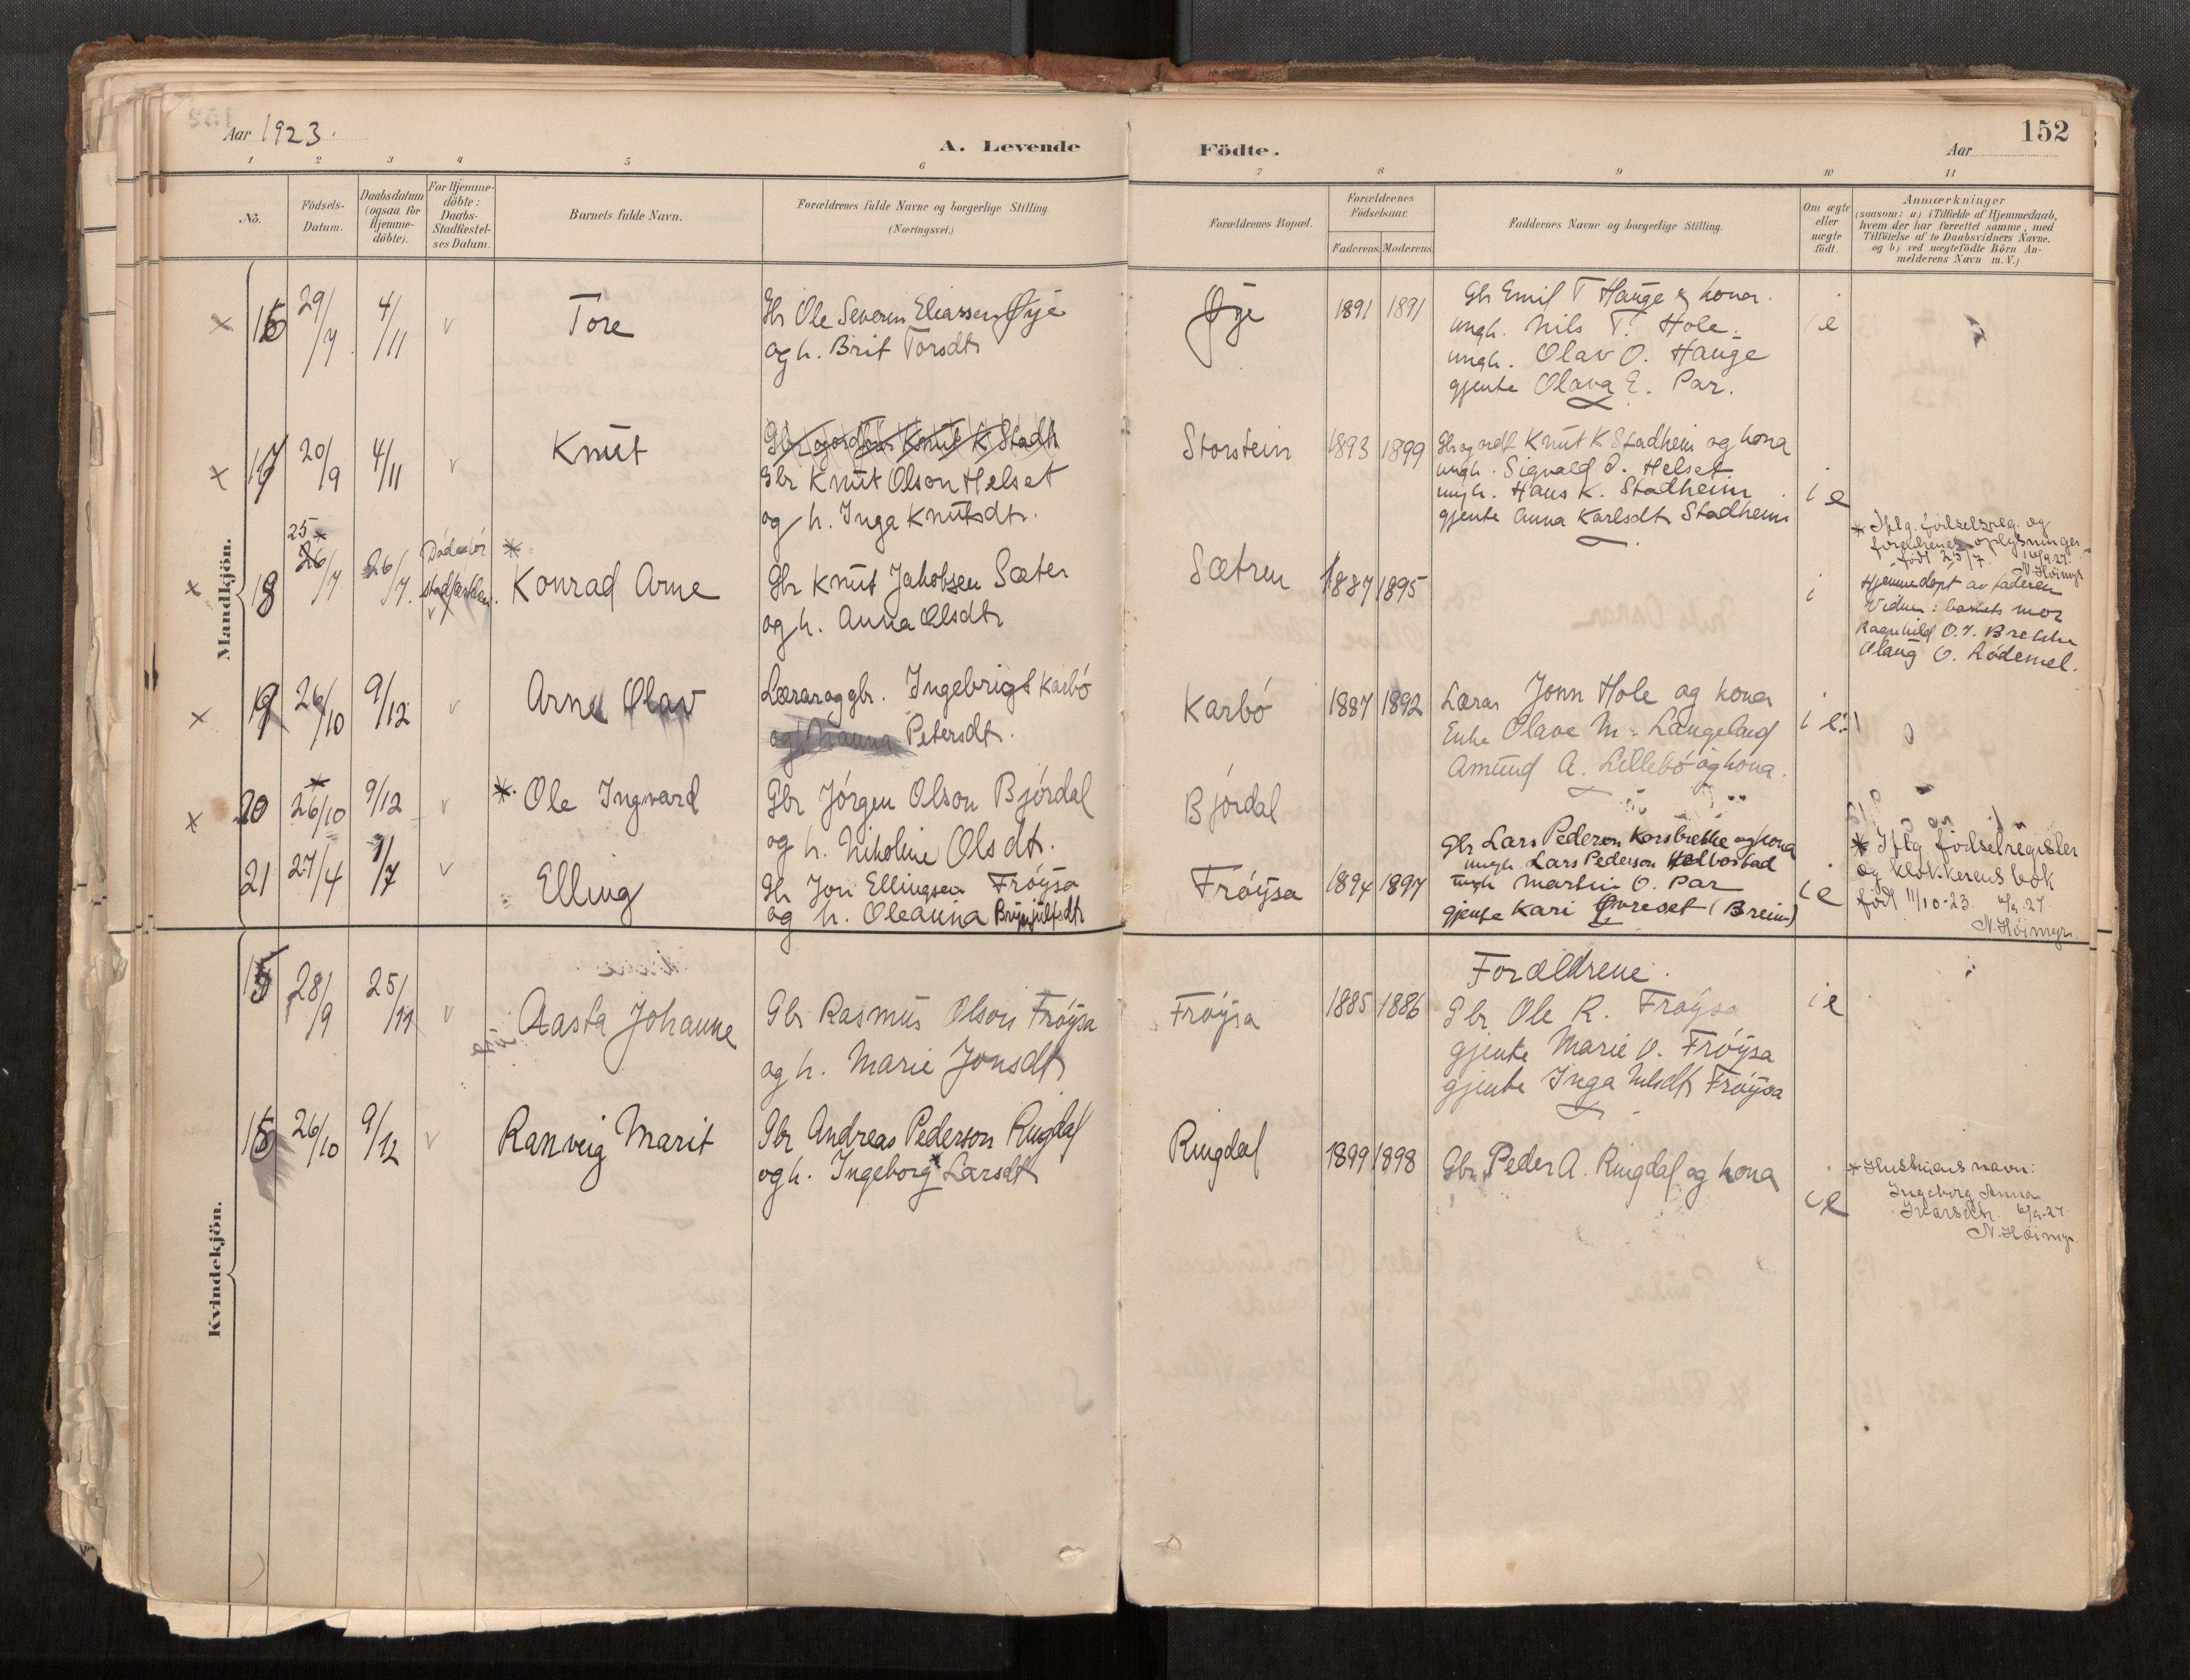 Aar 1923.
A. Levende Födte.
Aar
152
1 2 3 4 5 6 7 8 9 10 11
Nó.
Födsels-Datum.
Daabsdatum (ogsaa for Hjemme-döbte).
For Hjemme-döbte: Daabs-Stadfæstel-ses Datum.
Barnets fulde Navn.
Forældrenes fulde Navne og borgerlige Stilling.
(Næringsvei.)
Forældrenes Bopæl.
Forældrenes Födselsaar.
Faderens. Moderens.
Faddernes Navne og borgerlige Stilling.
Om ægte eller uægte födt.
Anmærkninger
(saasom: a) i Tilfælde af Hjemmedaab,
hvem der har forrettet samme, med
Tilföielse af to Daabsvidners Navne,
og b) ved uægtefödte Börn An-
melderens Navn m. V.)
Mandkjön.
× 16 29/7 4/11 v Tore
Gbr Ole Severin Eliassen Øye
og h. Brit Torsdtr
Øye 1891 1891
Gbr Emil T Hauge & kona.
ungk. Nils T. Hole.
ungk. Olav O. Hauge
gjente Olava E. Par.
e
× 17 20/9 4/11 v Knut
Gbr og ordfør Knut K. Stadh
Gbr Knut Olson Helset
og h. Inga Knutsdtr.
Storstein 1893 1899
Gbr og ordf Knut K Stadheim og kona
ungk. Sigvald O. Helset
ungk. Hans K. Stadheim
gjente Anna Karlsdtr Stadheim
i e
× 18 25* 26/7 26/7. Död før stadfæstelsen. v
* Konrad Arne
Gbr Knut Jakobsen Sæter
og h. Anna Olsdtr
Sætren 1887 1895
i
* Iflg. födselsreg. og
foreldrenes oplysninger
född 25/7. 16/9-27.
N. Höimyr
Hjemmedöpt av faderen
Vidner: barnets mor
Ragnhild O. T. Brekke
Olaug O. Lødemel.
× 19 26/10 9/12 v Arne Olav
Lærar og gbr. Ingebrigt Karbö
og Petersdtr.
Karbö 1887 1892
Lærar Jonn Hole og kona
Enke Olave M. Langeland
Amund A. Lillebö og kona.
i e
× 20 * 26/10 9/12 v *. Ole Ingvard
Gbr Jörgen Olson Björdal
og h. Nikoline Olsdtr.
Björdal
* Iflg. födselregister
og klokkerens bok
född 11/10-23. 6/9-27
N. Höimyr.
21 27/4 1/7 v Elling
Gbr Jon Ellingsen Fröysa
og h. Oleanna Brynjulfsdtr
Fröysa 1894 1897
Gbr Lars Pederson Korsbrekke og kona
ungk Lars Pederson
ungk Martin O. Par
gjente Kari (Breim)
i e
Kvindekjön.
28/9 25/11 v Aasta Johanne
Gbr Rasmus Olson Fröysa
og h. Marie Jonsdtr
Fröysa 1885 1886
Forældrene.
Gbr Ole R. Fröysa
gjente Marie O. Fröysa
gjente Inga Nilsdtr Fröysa
i e
26/10 9/12 v Ranveig Marit
Gbr Andreas Pederson Ringdal
og h. Ingeborg* Larsdtr
Ringdal 1899 1898
Gbr. Peder A. Ringdal og kona
i e
* Hustruens navn:
Ingeborg Anna
Ivarsdtr. 6/9-27.
N. Höimyr.